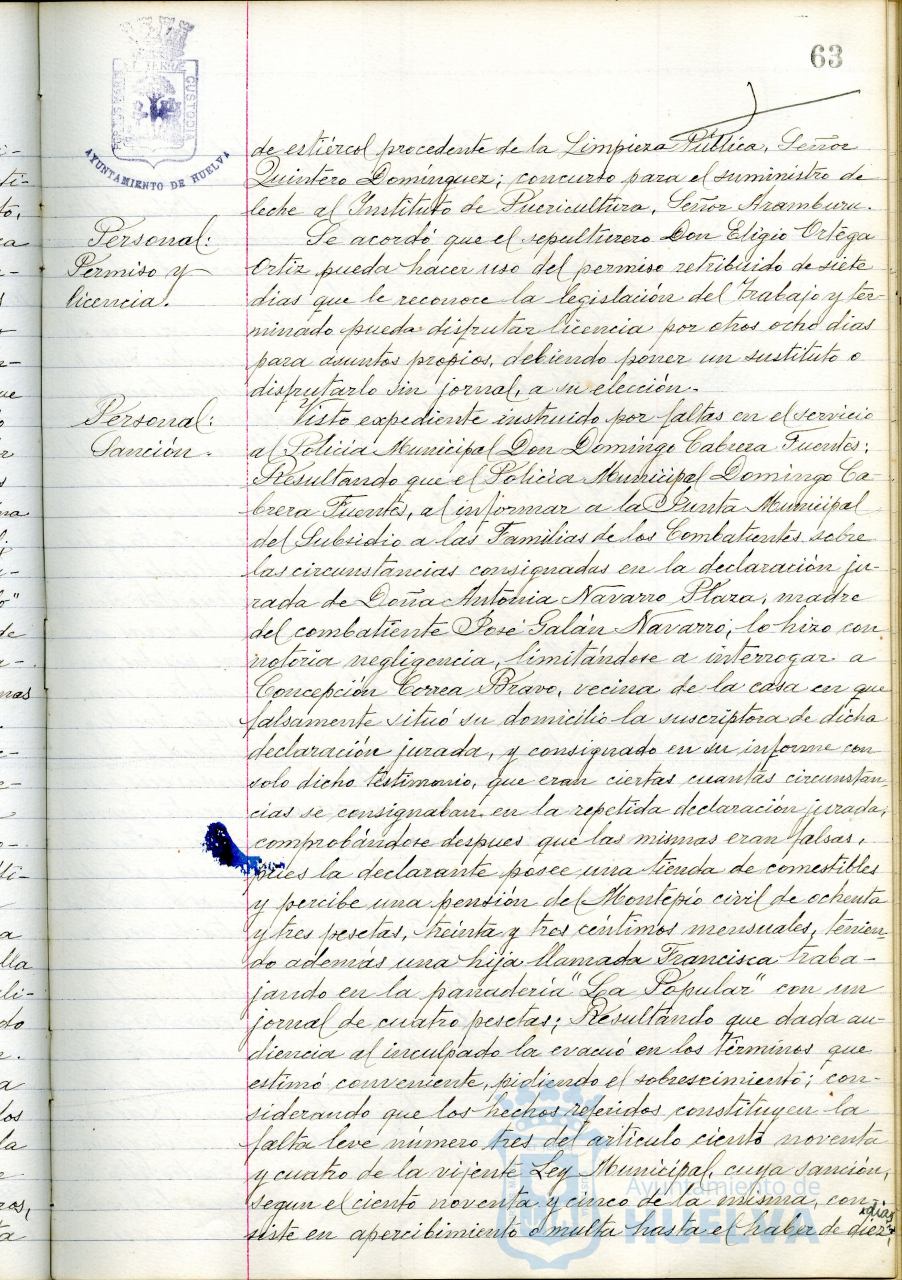 63
AYUNTAMIENTO DE HUELVA
de estiércol procedente de la Limpieza Pública, Señor
Quintero Domínguez; concurso para el suministro de
leche al Instituto de Puericultura, Señor Aramburu.
Personal:
Permiso y
licencia.
Se acordó que el sepulturero Don Eligio Ortega
Ortiz pueda hacer uso del permiso retribuido de siete
dias que le reconoce la legislación del Trabajo y ter-
minado pueda disfrutar licencia por otros ocho dias
para asuntos propios, debiendo poner un sustituto o
disfrutarlo sin jornal, a su elección.
Personal:
Sanción.
Visto expediente instruido por faltas en el servicio
al Policía Municipal Don Domingo Cabrera Fuentes;
Resultando que el Policía Municipal Domingo Ca-
brera Fuentes, al informar a la Junta Municipal
del Subsidio a las Familias de los Combatientes, sobre
las circunstancias consignadas en la declaración ju-
rada de Doña Antonia Navarro Plaza, madre
del combatiente José Galán Navarro, lo hizo con
notoria negligencia, limitándose a interrogar a
Concepción Correa Bravo, vecina de la casa en que
falsamente situó su domicilio la suscriptora de dicha
declaración jurada, y consignado en su informe con
solo dicho testimonio, que eran ciertas cuantas circunstan-
cias se consignaban en la repetida declaración jurada,
comprobándose despues que las mismas eran falsas,
pues la declarante posee una tienda de comestibles
y percibe una pensión de Montepío civil de ochenta
y tres pesetas, treinta y tres céntimos mensuales, tenien-
do ademas una hija llamada Francisca traba-
jando en la panadería "La Popular" con un
jornal de cuatro pesetas; Resultando que dada au-
diencia al inculpado la evacuó en los términos que
estimó conveniente, pidiendo el sobreseimiento; con-
siderando que los hechos referidos constituyen la
falta leve número tres del artículo ciento noventa
y cuatro de la vijente Ley Municipal, cuya sanción,
segun el ciento noventa y cinco de la misma, con-
siste en apercibimiento o multa hasta el haber de diez
dias
Ayuntamiento de
HUELVA